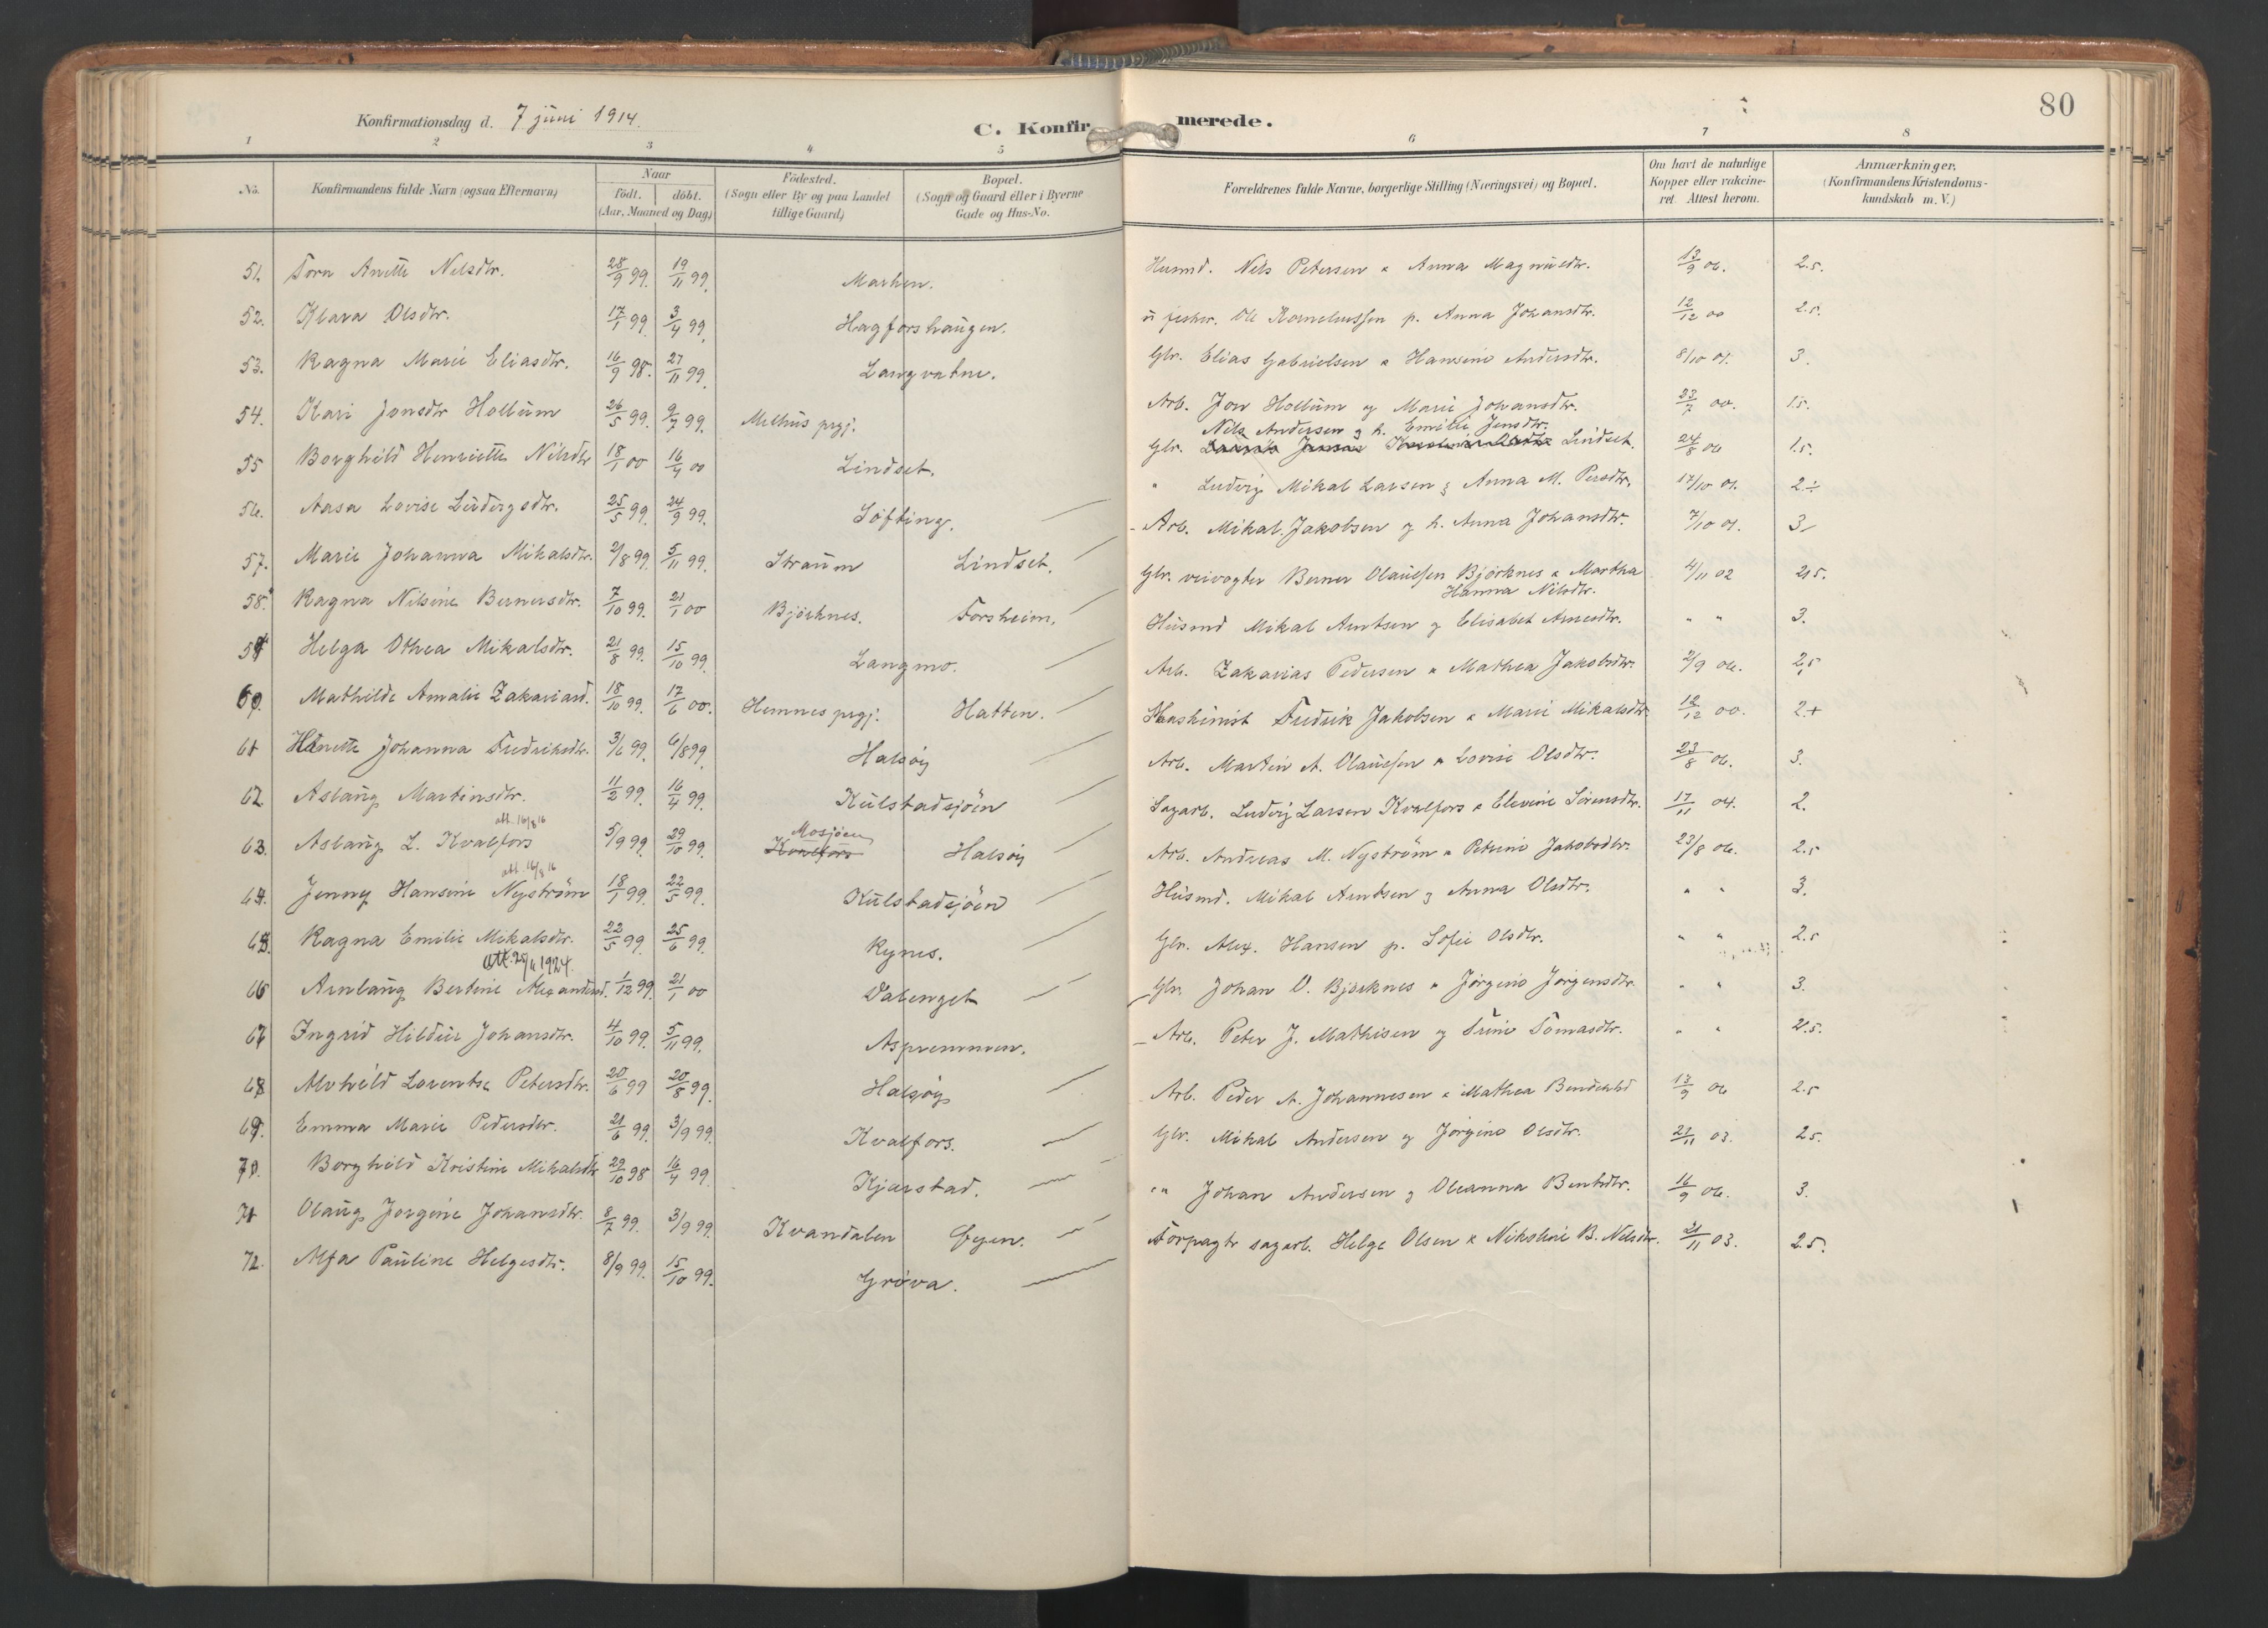 Konfirmationsdag d. 7 juni 1914. C. Konfirmerede. 80
1 2 3 4 5 6 7 8
No. Konfirmandens fulde Navn (ogsaa Efternavn) Naar født. døbt. (Aar, Maaned og Dag) Fødested. (Sogn eller By og paa Landet tillige Gaard) Bopæl. (Sogn og Gaard eller i Byerne Gade og Hus-No. Forældrenes fulde Navne, borgerlige Stilling (Næringsvei) og Bopæl. Om havt de naturlige Kopper eller vakcineret. Attest herom. Anmærkninger. (Konfirmandens Kristendomskundskab m. V.)
51. Tora Anette Nelsdtr. 28/9 99. 19/11 99. Marken. Husmd. Nels Petersen & Anna Magnusdtr. 13/9 06. 2.5.
52. Klara Olsdtr. 17/1 99. 3/4 99. Hagforshaugen. Ole Korneliussen p. Anna Johansdtr. 12/12 00 2.5.
53. Ragna Marie Eliasdtr. 16/9 98. 27/11 99. Langvatne. Gbr. Elias Gabrielsen & Hansine Andersdtr. 8/10 01. 3.
54. Kari Jonsdtr Hollum 26/5 99. 9/7 99. Melhus prgj. Arb. Jon Hollum og Marie Johansdtr. 23/7 00. 1.5.
Nils Andersen g h. Emilie Jensdtr.
55 Borghild Henriette Nilsdtr 18/1 00 16/4 00 Lindset. Gbr. Lindset. 24/8 06 1.5.
56. Aasa Lovise Ludvigsdtr. 25/5 99. 24/9 99. Søfting. " Ludvig Mikal Larsen g Anna M. Persdtr. 17/10 01. 2÷
57. Marie Johanna Mikalsdtr. 2/8 99. 5/11 99. Straum Lindset. Arb. Mikal Jakobsen og h. Anna Johansdtr. 7/10 01. 3
58. Ragna Nilsine Bernersdtr. 7/10 99. 21/1 00 Bjørknes. Forsheim. Gbr. veivogter Berner Olaussen Bjørknes & Martha Hanna Nilsdtr. 4/11 02 2.5.
59 Helga Othea Mikalsdtr. 21/8 99. 15/10 99. Langmo. Husmd Mikal Arntsen g Elisabet Arnesdtr. " " 3.
60. Mathilde Amalie Zakariasd. 18/10 99. 17/6 00. Hemnes prgj. Hatten. Arb. Zakarias Pedersen & Mathea Jakobsdtr. 2/9 06. 2,5
61 Hanette Johanna Fredriksdtr. 3/6 99. 6/8 99. Halsøy Maskinist Fredrik Jakobsen & Marie Mikalsdtr. 12/12 00. 2+
62. Aslaug Martinsdtr. 11/2 99. 16/4 99. Kulstadsjøen Arb. Martin A. Olaussen & Lovise Olsdtr. 23/8 06. 3.
att. 16/8 16
63. Aslaug L. Kvalfors 5/9 99. 29/10 99. Mosjøen Kvalfors Halsøy Sagarb. Ludvig Larsen Kvalfors & Elevine Sørensdtr. 17/11 04. 2.
att. 16/8 16
64. Jenny Hansine Nystrøm 18/1 99. 22/5 99. Kulstadsjøen Arb. Andreas M. Nystrøm & Petrine Jakobsdtr. 23/8 06. 2.5
65. Ragna Emilie Mikalsdtr. 22/5 99. 25/6 99. Rynes. Husmd. Mikal Arntsen g Anna Olsdtr. " " 3.
66 Arnlaug Bertine Alexandersd. 1/12 99. 21/1 00 Dalenget Gbr. Alex. Hansen p. Sofie Olsdtr. " " 2.5
67 Ingrid Hildur Johansdtr. 4/10 99. 5/11 99. Aspremmen. Gbr. Johan O. Bjørknes & Jørgine Jørgensdtr. " " 3.
68 Alvhild Lorentse Petersdtr. 20/6 99 20/8 99. Halsøy Arb. Peter J. Mathisen og Trine Tomasdtr. " " 2.5.
69. Emma Marie Pedersdtr. 21/6 99. 3/9 99. Kvalfors. Arb. Peder A. Johannesen & Mathea 13/9 06 2.5
70. Borghild Kristine Mikalsdtr 29/10 98 16/4 99. Kjærstad. Gbr. Mikal Andersen og Jørgine Olsdtr. 23/11 03. 2.5.
71 Olaug Jørgine Johansdtr. 8/7 99. 3/9 99. Kvandalen Øyen. " Johan Andersen g Oleanna Bentsdtr. 16/9 06. 3.
72. Alfa Pauline Helgesdtr. 8/9 99. 15/10 99. Grøva. Forpagtr sagarb. Helge Olsen & Nikoline B. Nilsdtr. 21/11 03. 2.5.